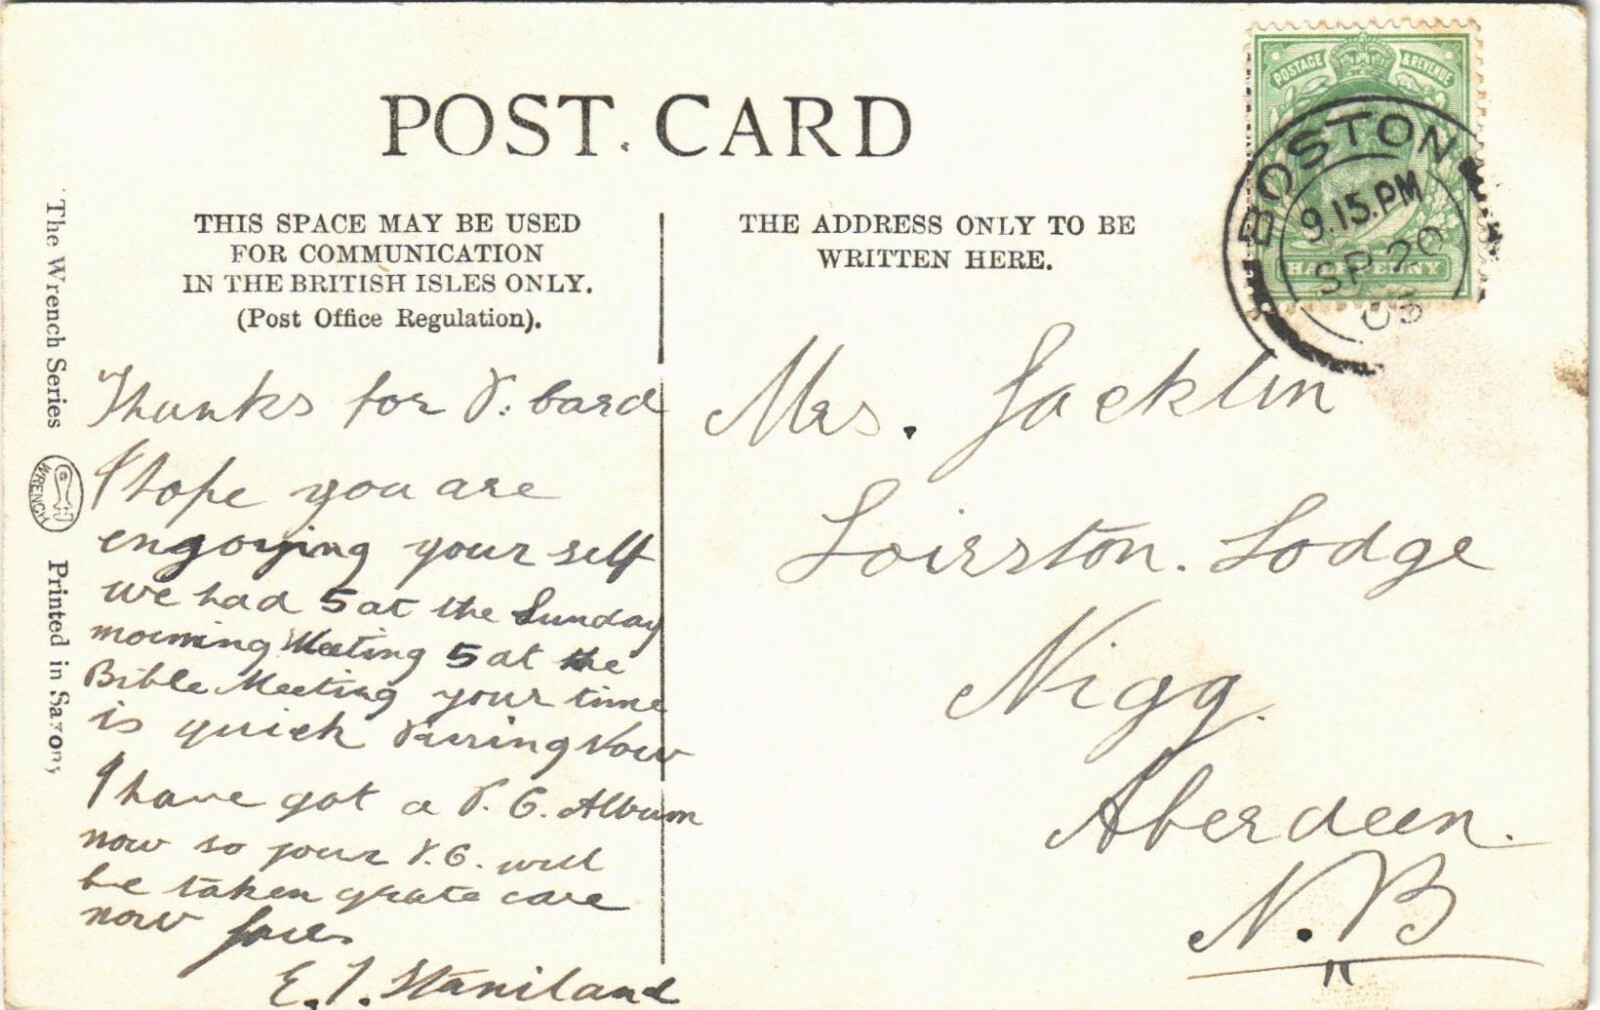 POST CARD
THIS SPACE MAY BE USED
FOR COMMUNICATION
IN THE BRITISH ISLES ONLY.
(Post Office Regulation).
THE ADDRESS ONLY TO BE
WRITTEN HERE.
POSTAGE & REVENUE
HALFPENNY
BOSTON
9.15.PM
SP 20
05
The Wrench Series
WRENCH
Printed in Saxony
Thanks for P. Card
I hope you are
engoying your self
we had 5 at the Sunday
morning Meeting 5 at the
Bible Meeting your time
is quick Passing Now
I have got a P. C. Album
now so your P. C. will
be taken grate care
now
E. J. Staniland
Mrs. Jacklin
Loirston. Lodge
Nigg.
Aberdeen.
N. B